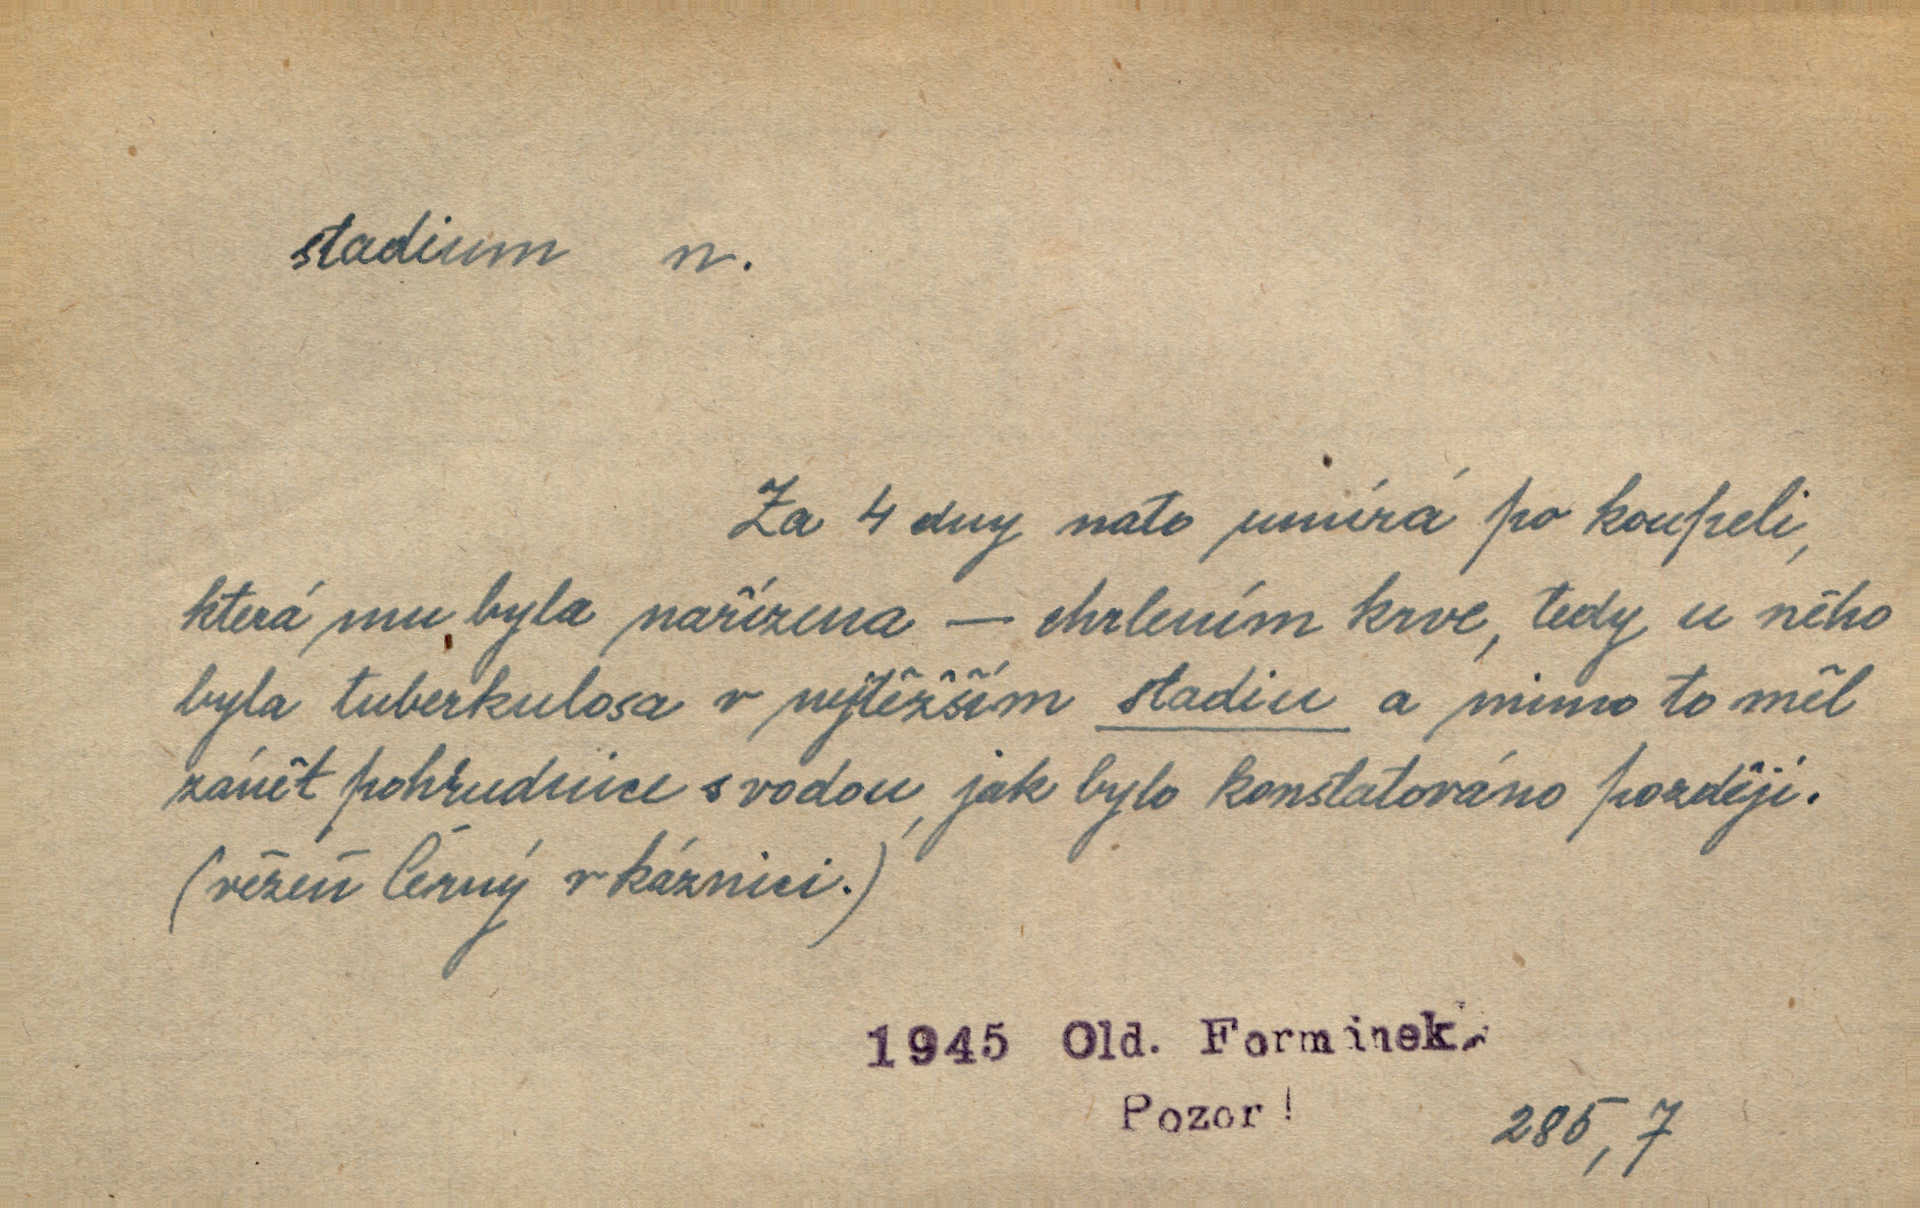 stadium n.
Za 4 dny nato umírá po koupeli,
která mu byla nařízena — chrlením krve, tedy u něho
byla tuberkulosa v nejtěžším stadiu a mimo to měl
zánět pohrudnice s vodou, jak bylo konstatováno později.
(vězeň Černý v káznici.)
1945 Old. Forminek
Pozor!
285,7